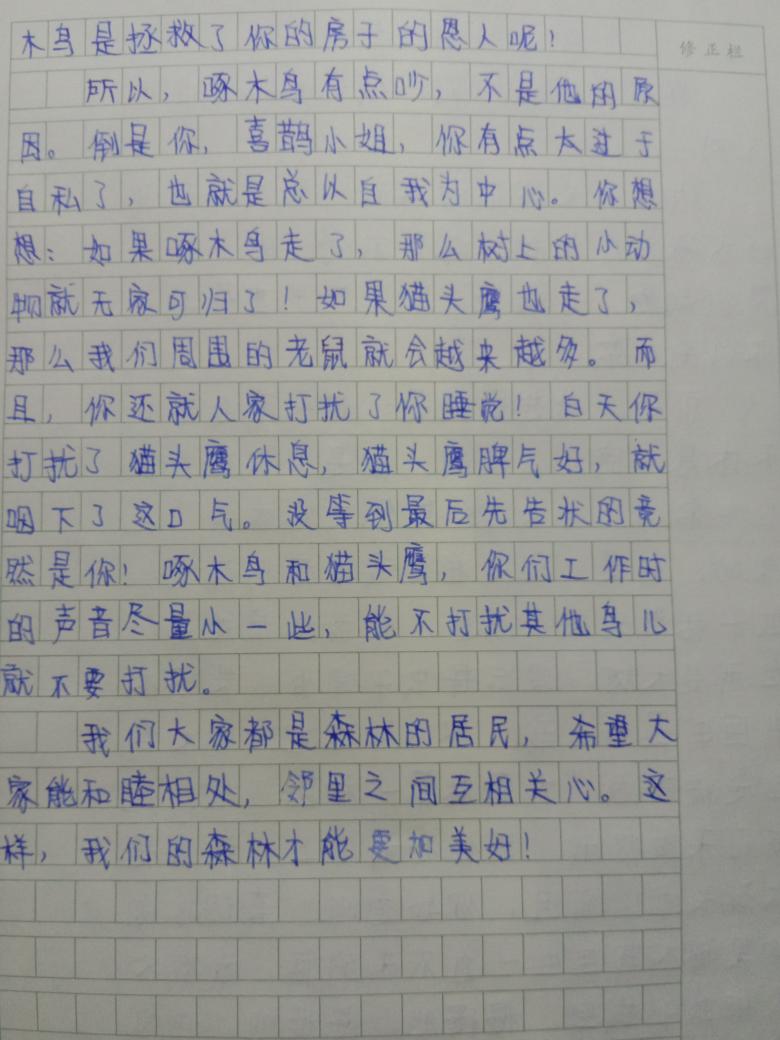 木鸟是拯救了你的房子的恩人呢！
修正栏
所以，啄木鸟有点吵，不是他的原
因。倒是你，喜鹊小姐，你有点太过于
自私了，也就是总以自我为中心。你想
想：如果啄木鸟走了，那么树上的小动
物就无家可归了！如果猫头鹰也走了，
那么我们周围的老鼠就会越来越多。而
且，你还就人家打扰了你睡觉！白天你
打扰了猫头鹰休息，猫头鹰脾气好，就
咽下了这口气。没等到最后先告状的竟
然是你！啄木鸟和猫头鹰，你们工作时
的声音尽量小一些，能不打扰其他鸟儿
就不要打扰。
我们大家都是森林的居民，希望大
家能和睦相处，邻里之间互相关心。这
样，我们的森林才能更加美好！